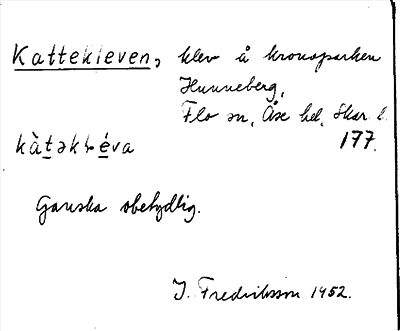 Kattekleven, klev å kronoparken
Hunneberg,
Flo sn, Åse hd, Skar. l.
kàtəkḷéva 177.
Ganska obetydlig.
J. Fredriksson 1952.